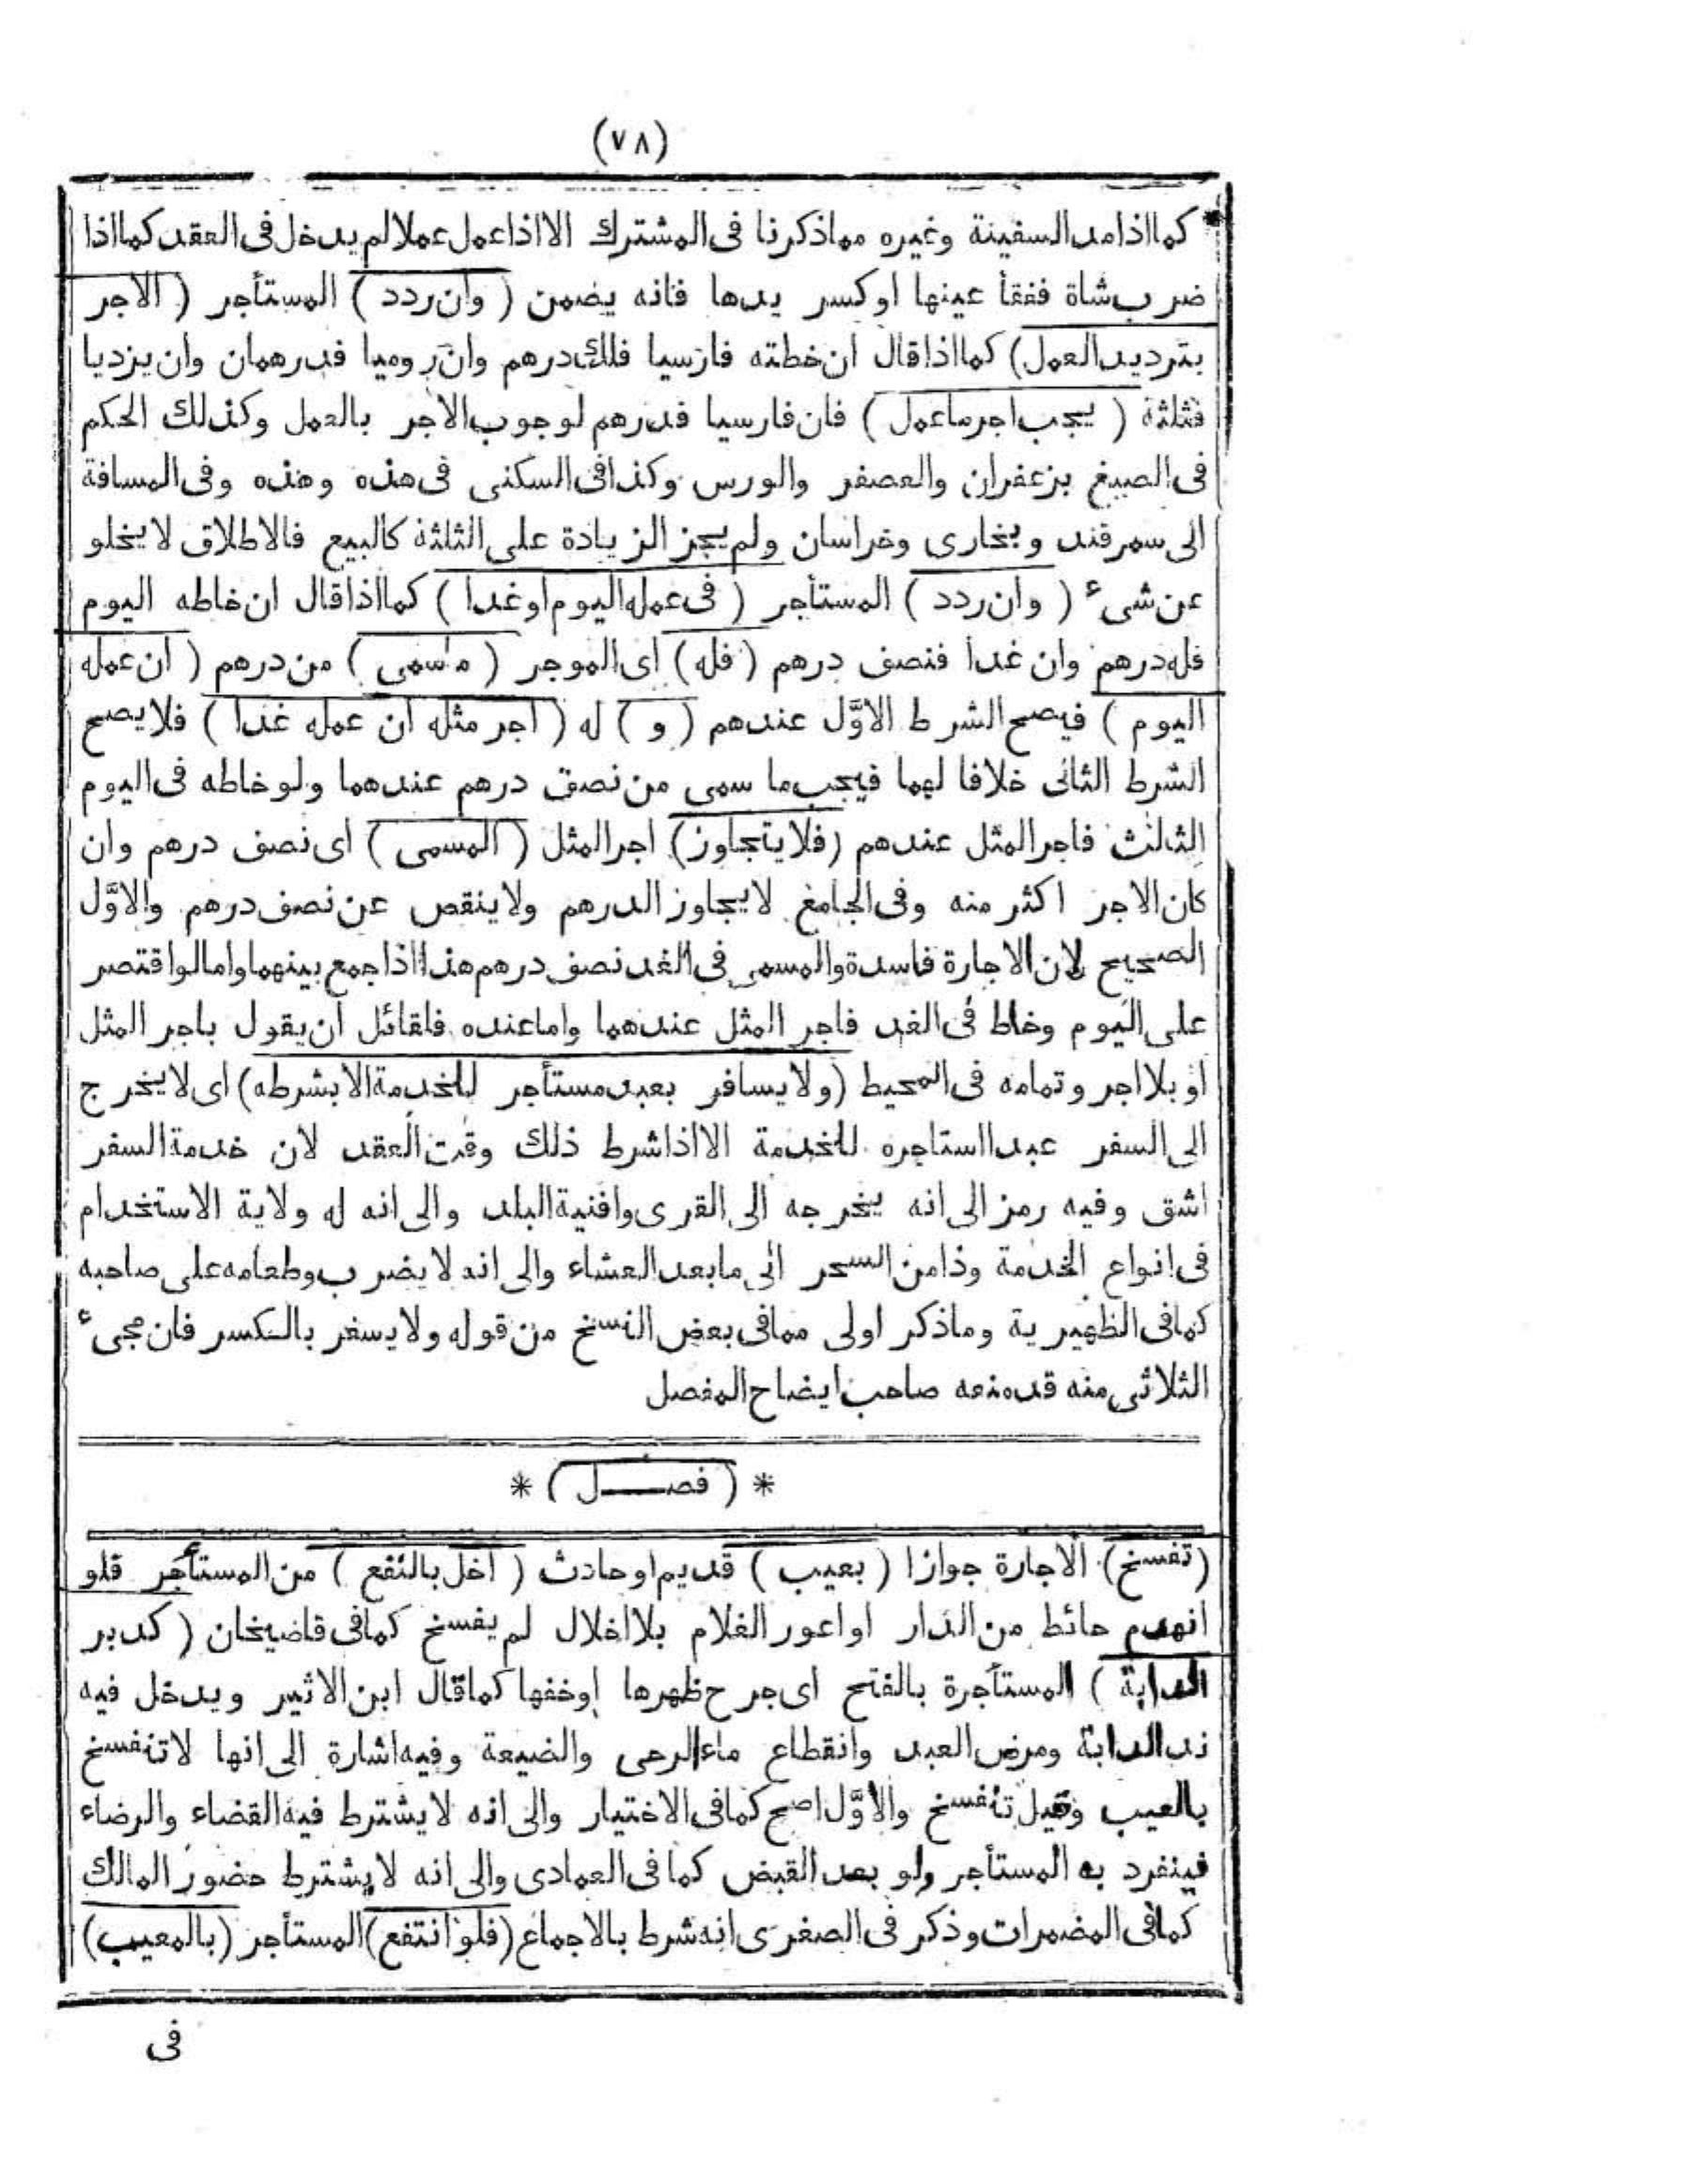 (٧٨)
كما اذا مد السفينة وغيره مما ذكرنا فى المشترك الا اذا عمل عملا لم يدخل فى العقد كما اذا
ضرب شاة ففقأ عينها او كسر يدها فانه يضمن ( وان ردد ) المستأجر ( الاجر
بترديد العمل) كما اذا قال ان خطته فارسيا فلك درهم وان روميا فدرهمان وان يزديا
فثلثة ( يجب اجر ما عمل ) فان فارسيا فدرهم لوجوب الاجر بالعمل وكذلك الحكم
فى الصبغ بزعفران والعصفر والورس وكذا فى السكنى فى هذه وهذه وفى المسافة
الى سمرقند وبخارى وخراسان ولم يجز الزيادة على الثلثة كالبيع فالاطلاق لا يخلو
عن شىء ( وان ردد ) المستأجر ( فى عمله اليوم او غدا ) كما اذا قال ان خاطه اليوم
فله درهم وان غدا فنصف درهم ( فله ) اى الموجر ( ما سمى ) من درهم ( ان عمله
اليوم ) فيصح الشرط الاوّل عندهم ( و ) له ( اجر مثله ان عمله غدا ) فلا يصح
الشرط الثانى خلافا لهما فيجب ما سمى من نصف درهم عندهما ولو خاطه فى اليوم
الثالث فاجر المثل عندهم (فلا يتجاوز) اجر المثل ( المسمى ) اى نصف درهم وان
كان الاجر اكثر منه وفى الجامع لا يجاوز الدرهم ولا ينقص عن نصف درهم والاوّل
الصحيح لان الاجارة فاسدة والمسمى فى الغد نصف درهم هذا اذا جمع بينهما واما لو اقتصر
على اليوم وخاط فى الغد فاجر المثل عندهما واما عنده فلقائل ان يقول باجر المثل
او بلا اجر وتمامه فى المحيط (ولا يسافر بعبد مستأجر للخدمة الا بشرطه) اى لا يخرج
الى السفر عبدا استاجره للخدمة الا اذا شرط ذلك وقت العقد لان خدمة السفر
اشق وفيه رمز الى انه يخرجه الى القرى وافنية البلد والى انه له ولاية الاستخدام
فى انواع الخدمة وذا من السحر الى ما بعد العشاء والى انه لا يضرب وطعامه على صاحبه
كما فى الظهيرية وما ذكر اولى مما فى بعض النسخ من قوله ولا يسفر بالكسر فان مجىء
الثلاثى منه قد منعه صاحب ايضاح المفصل
* ( فصــــل ) *
(تفسخ) الاجارة جوازا ( بعيب ) قديم او حادث ( اخل بالنفع ) من المستأجر فلو
انهدم حائط من الدار او اعور الغلام بلا اخلال لم يفسخ كما فى قاضيخان ( كدبر
الدابة ) المستأجرة بالفتح اى جرح ظهرها اوخفها كما قال ابن الاثير ويدخل فيه
ند الدابة ومرض العبد وانقطاع ماء الرحى والضيعة وفيه اشارة الى انها لا تنفسخ
بالعيب وقيل تنفسخ والاوّل اصح كما فى الاختيار والى انه لا يشترط فيه القضاء والرضاء
فينفرد به المستأجر ولو بعد القبض كما فى العمادى والى انه لا يشترط حضور المالك
كما فى المضمرات وذكر فى الصغرى انه شرط بالاجماع (فلو انتفع) المستأجر (بالمعيب)
فى